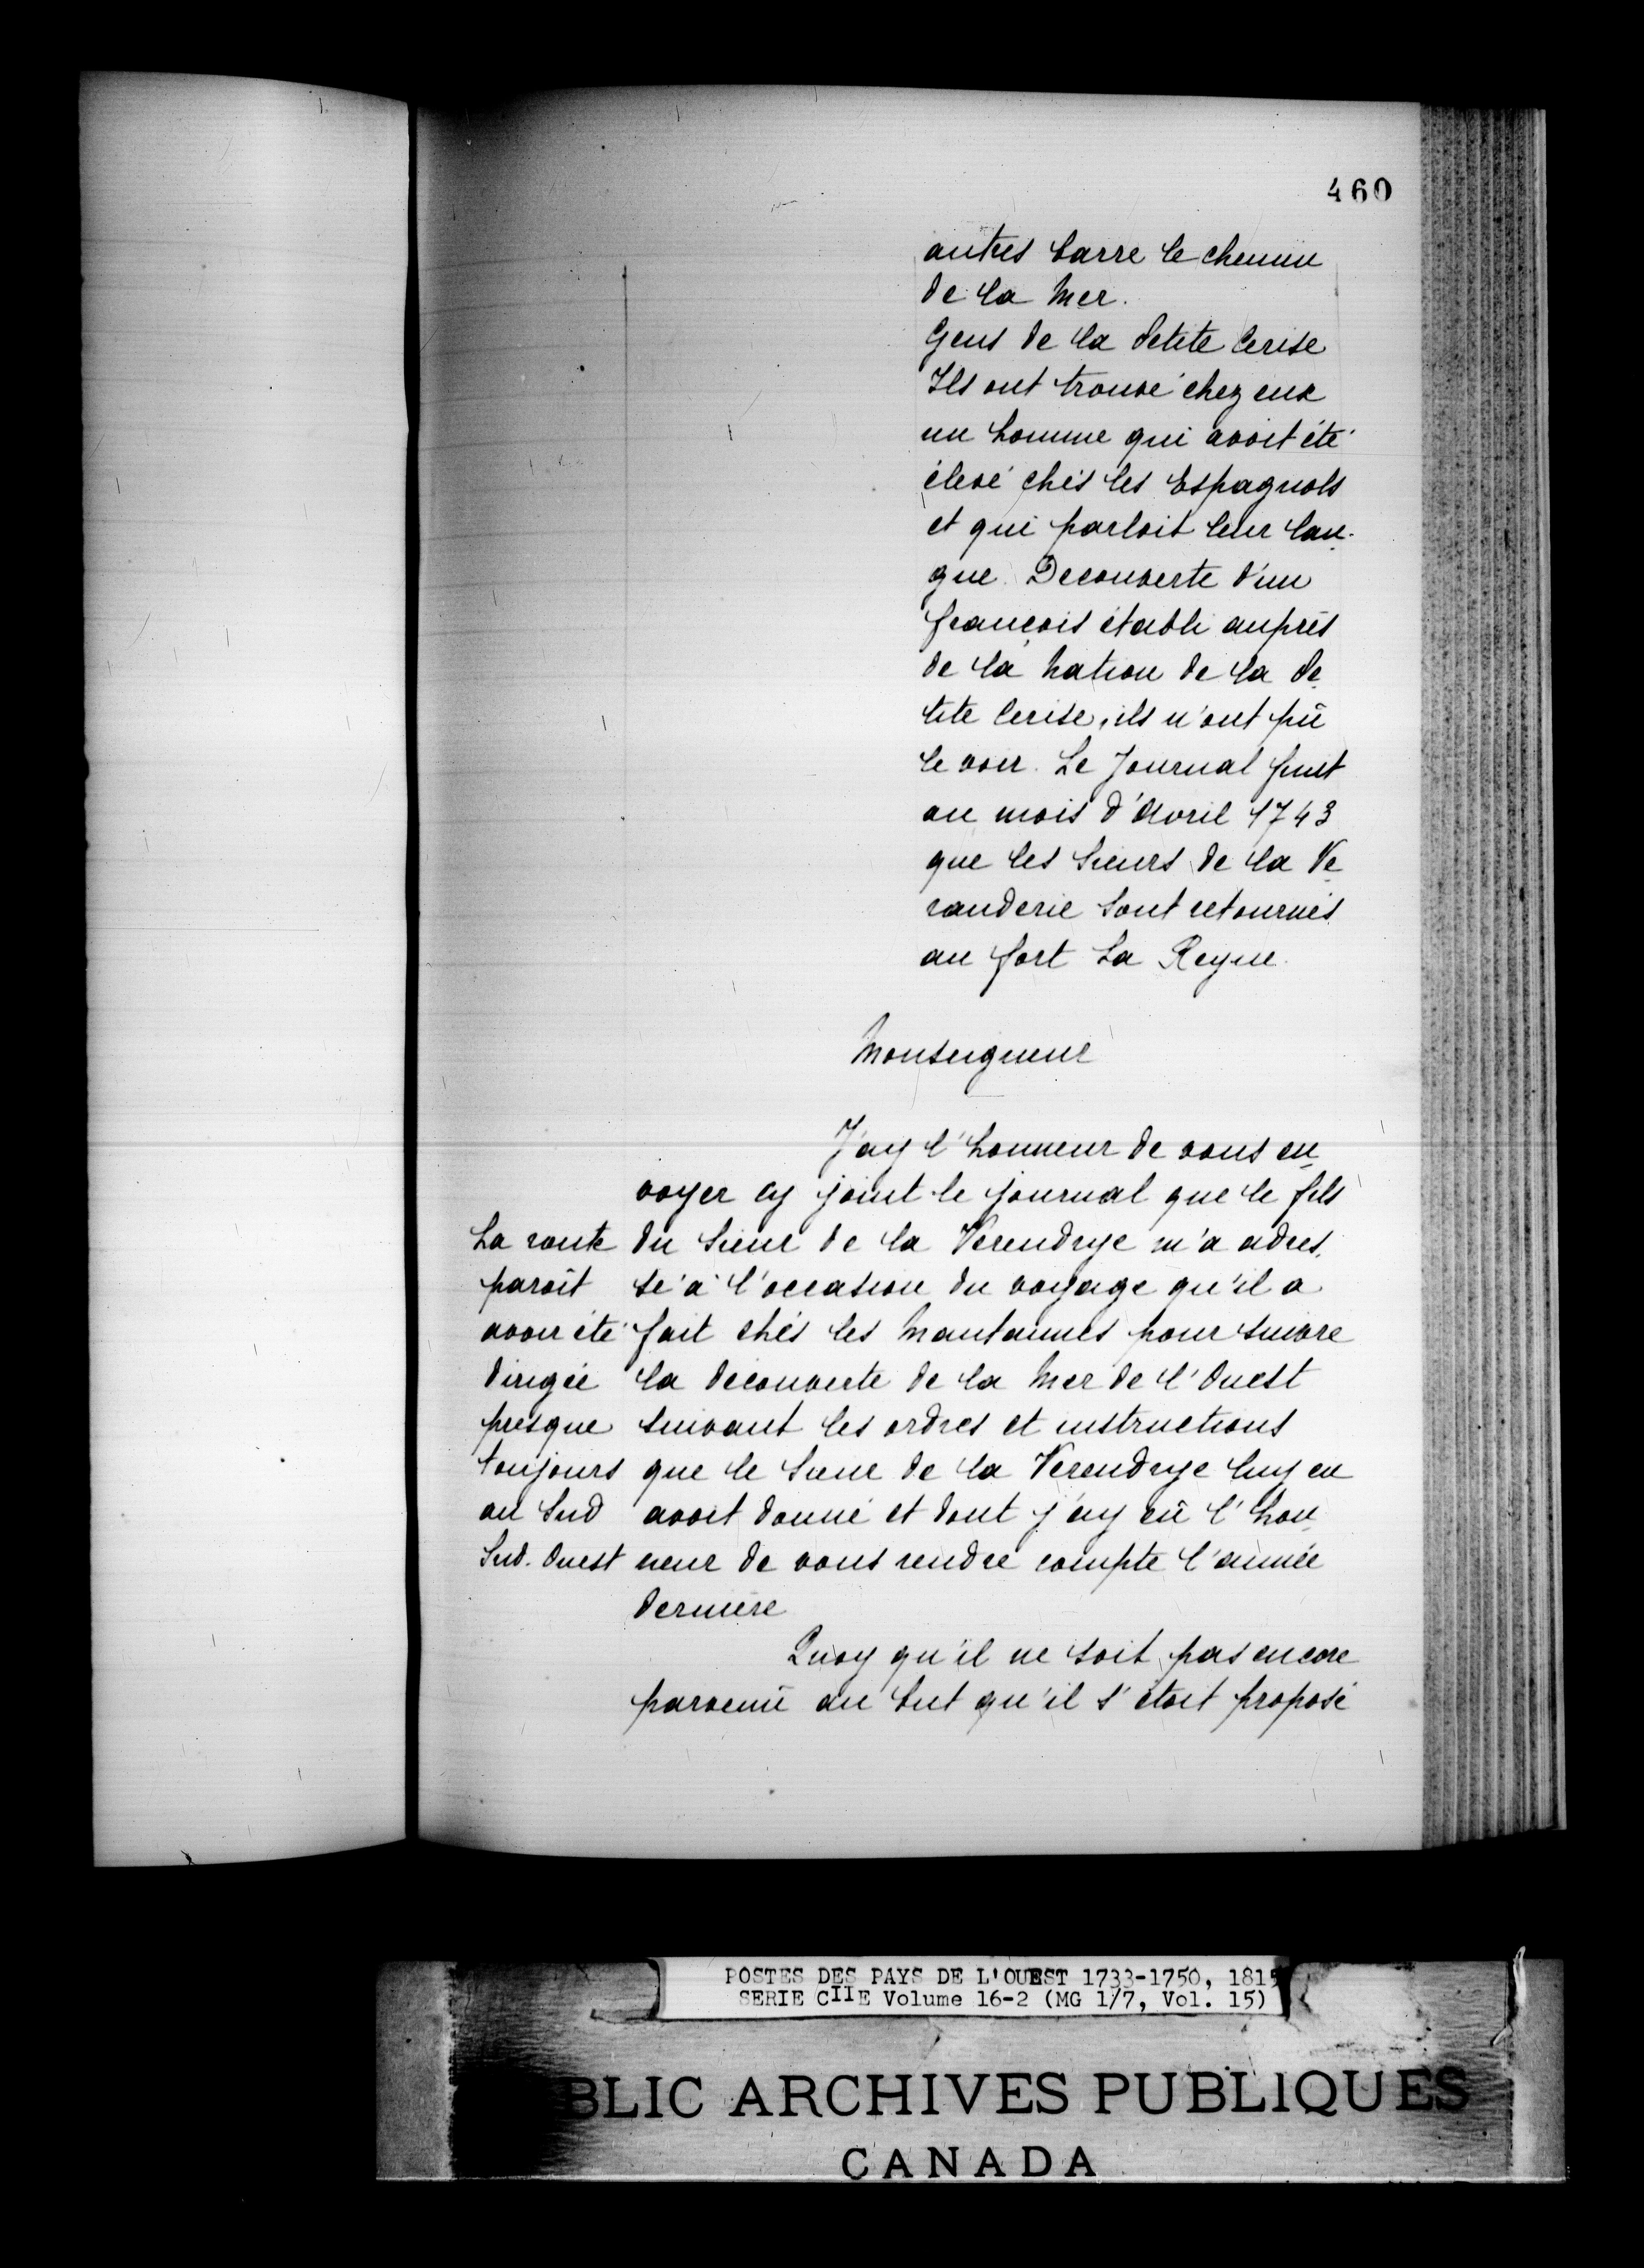 460
autres barre le chemin
de la Mer.
Gens de la Petite Cerise
Ils ont trouvé chez eux
un homme qui avoit été
élevé chés les Espagnols
et qui parloit leur lan-
gue. Decouverte d'un
françois établi auprès
de la Nation de la Pe
tite Cerise, ils n'ont pû
le voir. Le Journal finit
au mois d'Avril 1743
que les Sieurs de la Ve
randerie sont retournés
au fort La Reyne.
Monseigneur
J'ay l'honneur de vous en
voyer cy joint le journal que le fils
du Sieur de la Verendrye m'a adres
sé à l'occasion du voyage qu'il a
fait chés les Mantannes pour suivre
la découverte de la Mer de l'Ouest
suivant les ordres et instructions
que le Sieur de la Verendrye luy en
avoit donné et dont j'ay eû l'hon
neur de vous rendre compte l'année
dernière
La route
paroît
avoir été
dirigée
presque
toujours
au Sud
Sud-Ouest
Quoy qu'il ne soit pas encore
parvenû au but qu'il s'étoit proposé
POSTES DES PAYS DE L'OUEST 1733-1750, 1815
SERIE CIIE Volume 16-2 (MG 1/7, Vol. 15)
BLIC ARCHIVES PUBLIQUES
CANADA